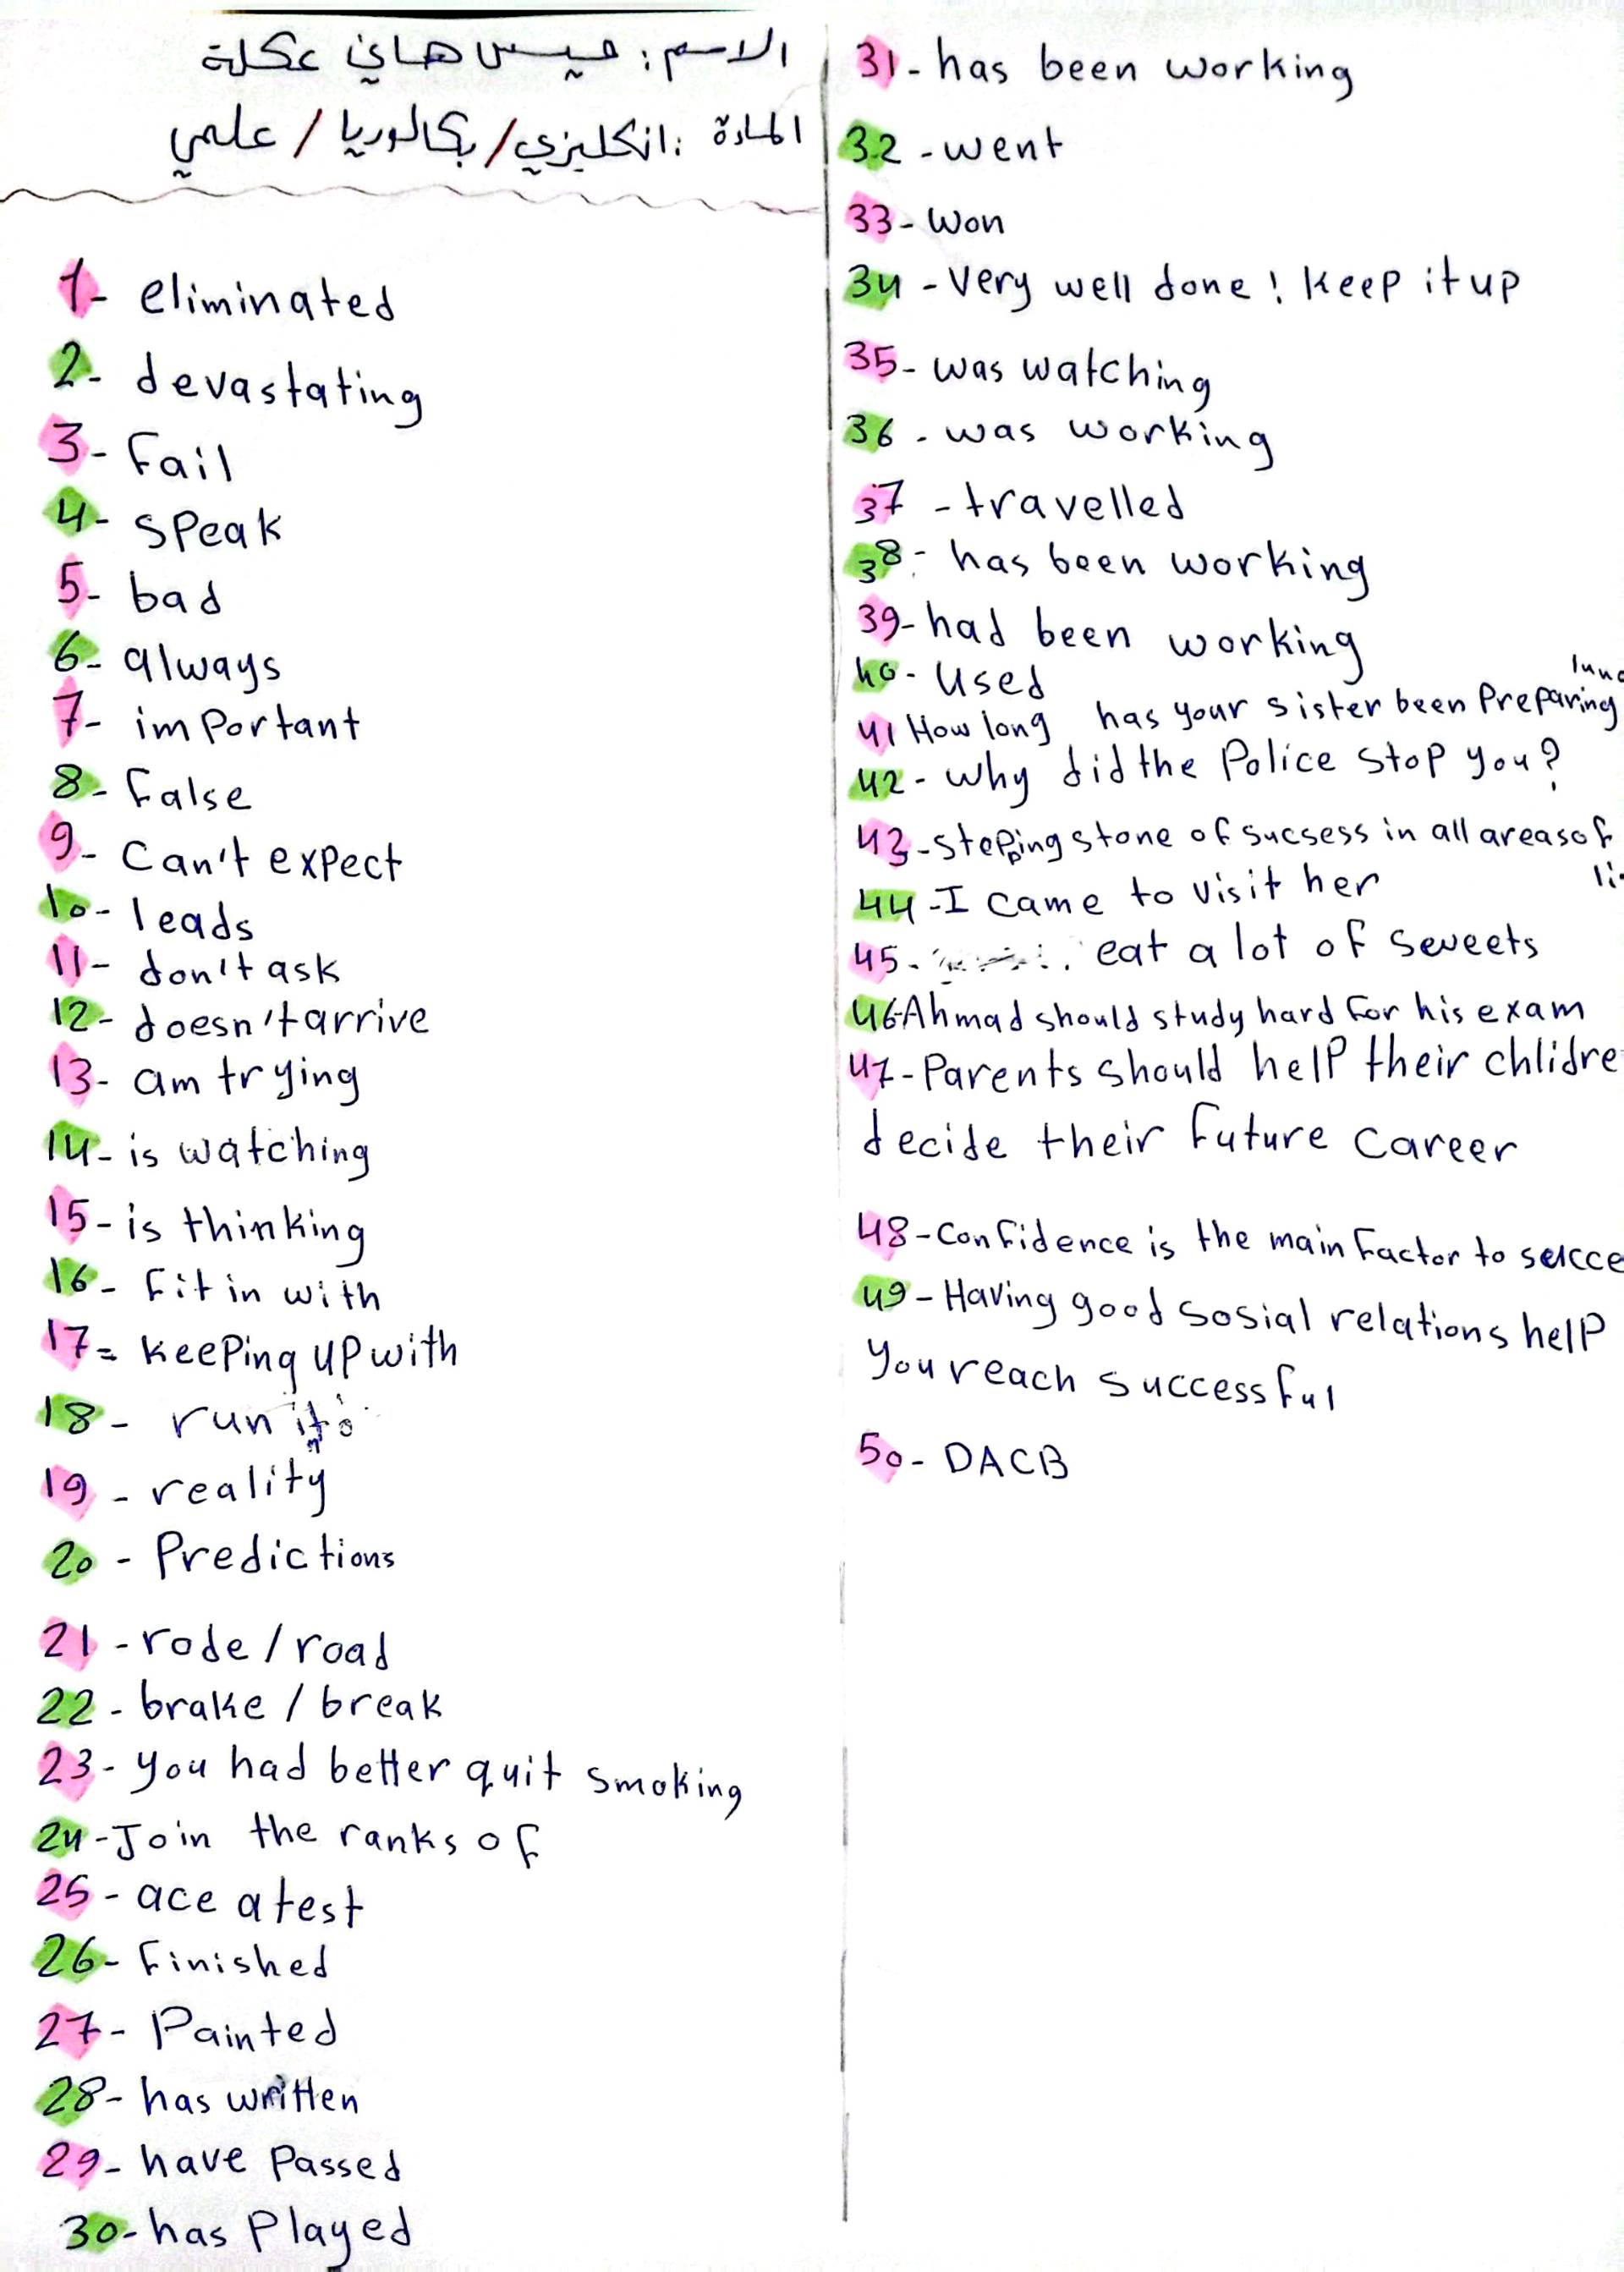 الاسم: ميس هاني عكلة
المادة: انكليزي/بكالوريا/علمي
1- eliminated
2- devastating
3- Fail
4- speak
5- bad
6- always
7- important
8- False
9- Can't expect
10- leads
11- don't ask
12- doesn't arrive
13- am trying
14- is watching
15- is thinking
16- Fit in with
17= keeping up with
18- run
19- reality
20- Predictions
21- rode/road
22- brake/break
23- you had better quit smoking
24- Join the ranks of
25- ace a test
26- Finished
27- Painted
28- has written
29- have Passed
30- has Played
31- has been working
32- went
33- won
34- Very well done! keep it up
35- was watching
36- was working
37- travelled
38- has been working
39- had been working
40- Used
41 How long has your sister been Preparing
42- Why did the Police stop you?
43- steping stone of sucsess in all areas of
44- I came to visit her
45- eat a lot of seweets
46- Ahmad should study hard for his exam
47- Parents should help their chlidre
decide their future career
48- Confidence is the main factor to
49- Having good sosial relations help
You reach successful
50- DACB